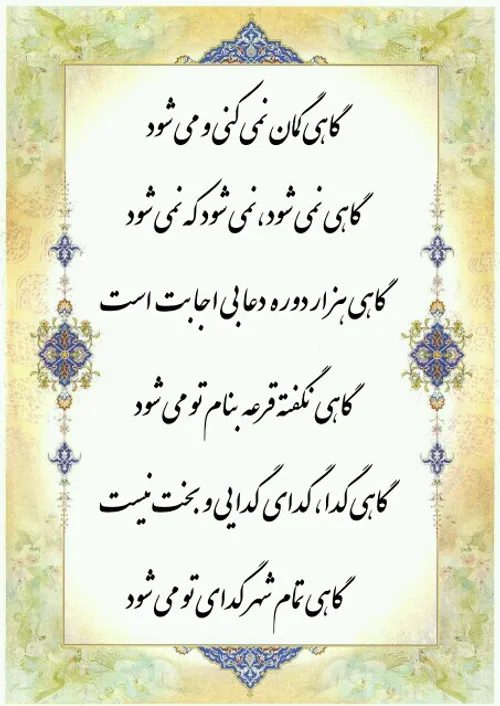 گاهی گمان نمی کنی و می شود
گاهی نمی شود، نمی شود که نمی شود
گاهی هزار دوره دعا بی اجابت است
گاهی نگفته قرعه بنام تو می شود
گاهی گدا، گدای گدایی و بخت نیست
گاهی تمام شهر گدای تو می شود